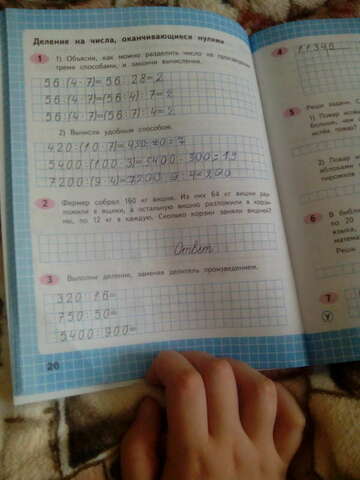 Деление на числа, оканчивающиеся нулями
1 1) Объясни, как можно разделить число на произведение
тремя способами, и закончи вычисления.
56:(4·7)=56:28=2
56:(4·7)=(56:4):7=2
56:(4·7)=(56:7):4=2
2) Вычисли удобным способом.
420:(10·7)=420:70=7
5400:(100·3)=5400:300=19
7200:(9·4)=7200:9:4=200
2 Фермер собрал 160 кг вишни. Из них 64 кг вишни раз-
ложили в ящики, а остальную вишню разложили в корзи-
ны, по 12 кг в каждую. Сколько корзин заняли вишней?
Ответ
3 Выполни деление, заменяя делитель произведением.
320:16=
750:50=
5400:900=
20
4
11346
5 Реши задачи
1) Повар
больше, чем
2) Повар
яблоками
пирожков
6 В
по 20
языка,
матема
Реши
7